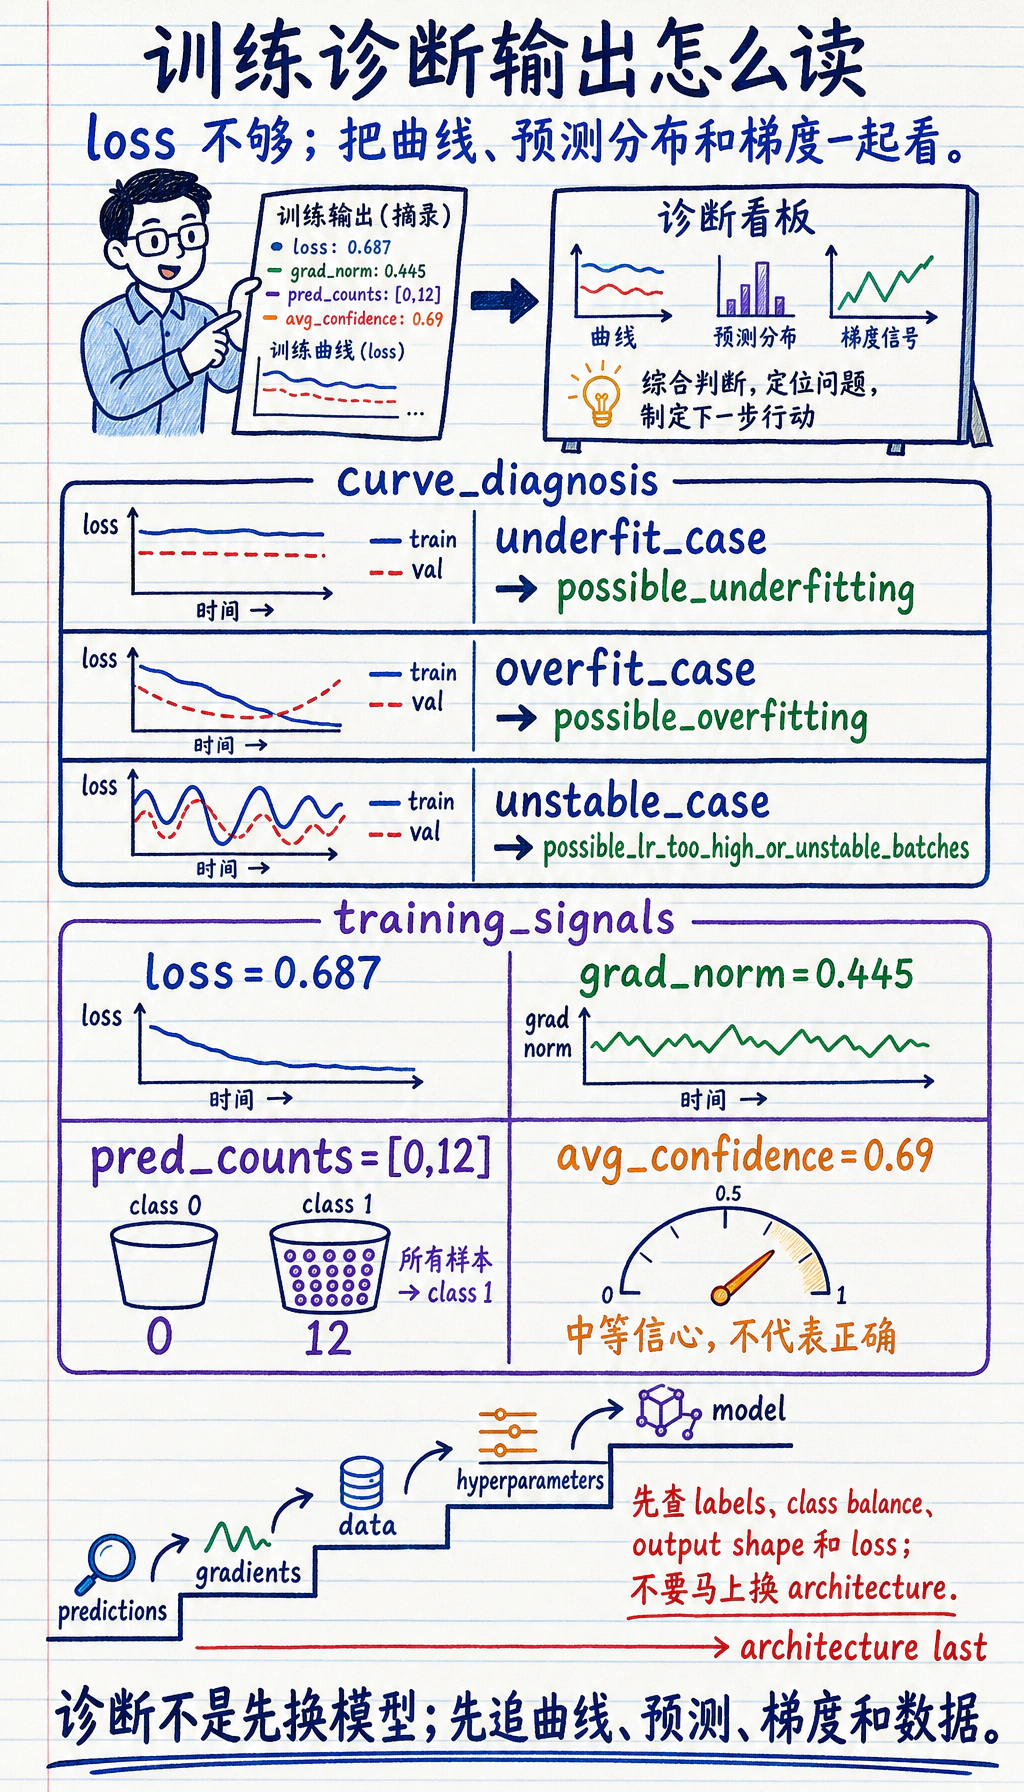 训练诊断输出怎么读
loss 不够；把曲线、预测分布和梯度一起看。
训练输出(摘录)
loss: 0.687
grad_norm: 0.445
pred_counts: [0,12]
avg_confidence: 0.69
训练曲线(loss)
...
诊断看板
曲线
预测分布
梯度信号
综合判断，定位问题，
制定下一步行动
curve_diagnosis
loss
train
val
时间 →
underfit_case
→ possible_underfitting
loss
train
val
时间 →
overfit_case
→ possible_overfitting
loss
train
val
时间 →
unstable_case
→ possible_lr_too_high_or_unstable_batches
training_signals
loss = 0.687
loss
时间 →
grad_norm = 0.445
grad
norm
时间 →
pred_counts = [0,12]
class 0
class 1
所有样本
→ class 1
0
12
avg_confidence = 0.69
0.5
0
1
中等信心，不代表正确
predictions
gradients
data
hyperparameters
model
先查 labels、class balance、
output shape 和 loss；
不要马上换 architecture.
architecture last
诊断不是先换模型；先追曲线、预测、梯度和数据。